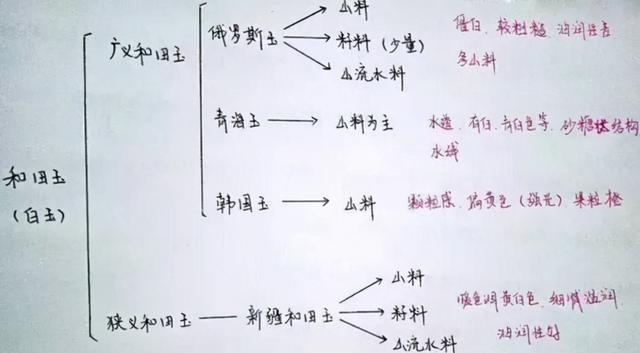 和田玉
(白玉)
广义和田玉
俄罗斯玉
山料
料料 (少量)
山流水料
僵白、较粗糙、油润性差
多山料
青海玉
山料为主
水透、有白、青白色等、砂糖状结构
水线
韩国玉
山料
颗粒感、偏黄色 (强光) 果粒橙
狭义和田玉
新疆和田玉
山料
籽料
山流水料
暖色调黄白色、细腻温润
油润性好